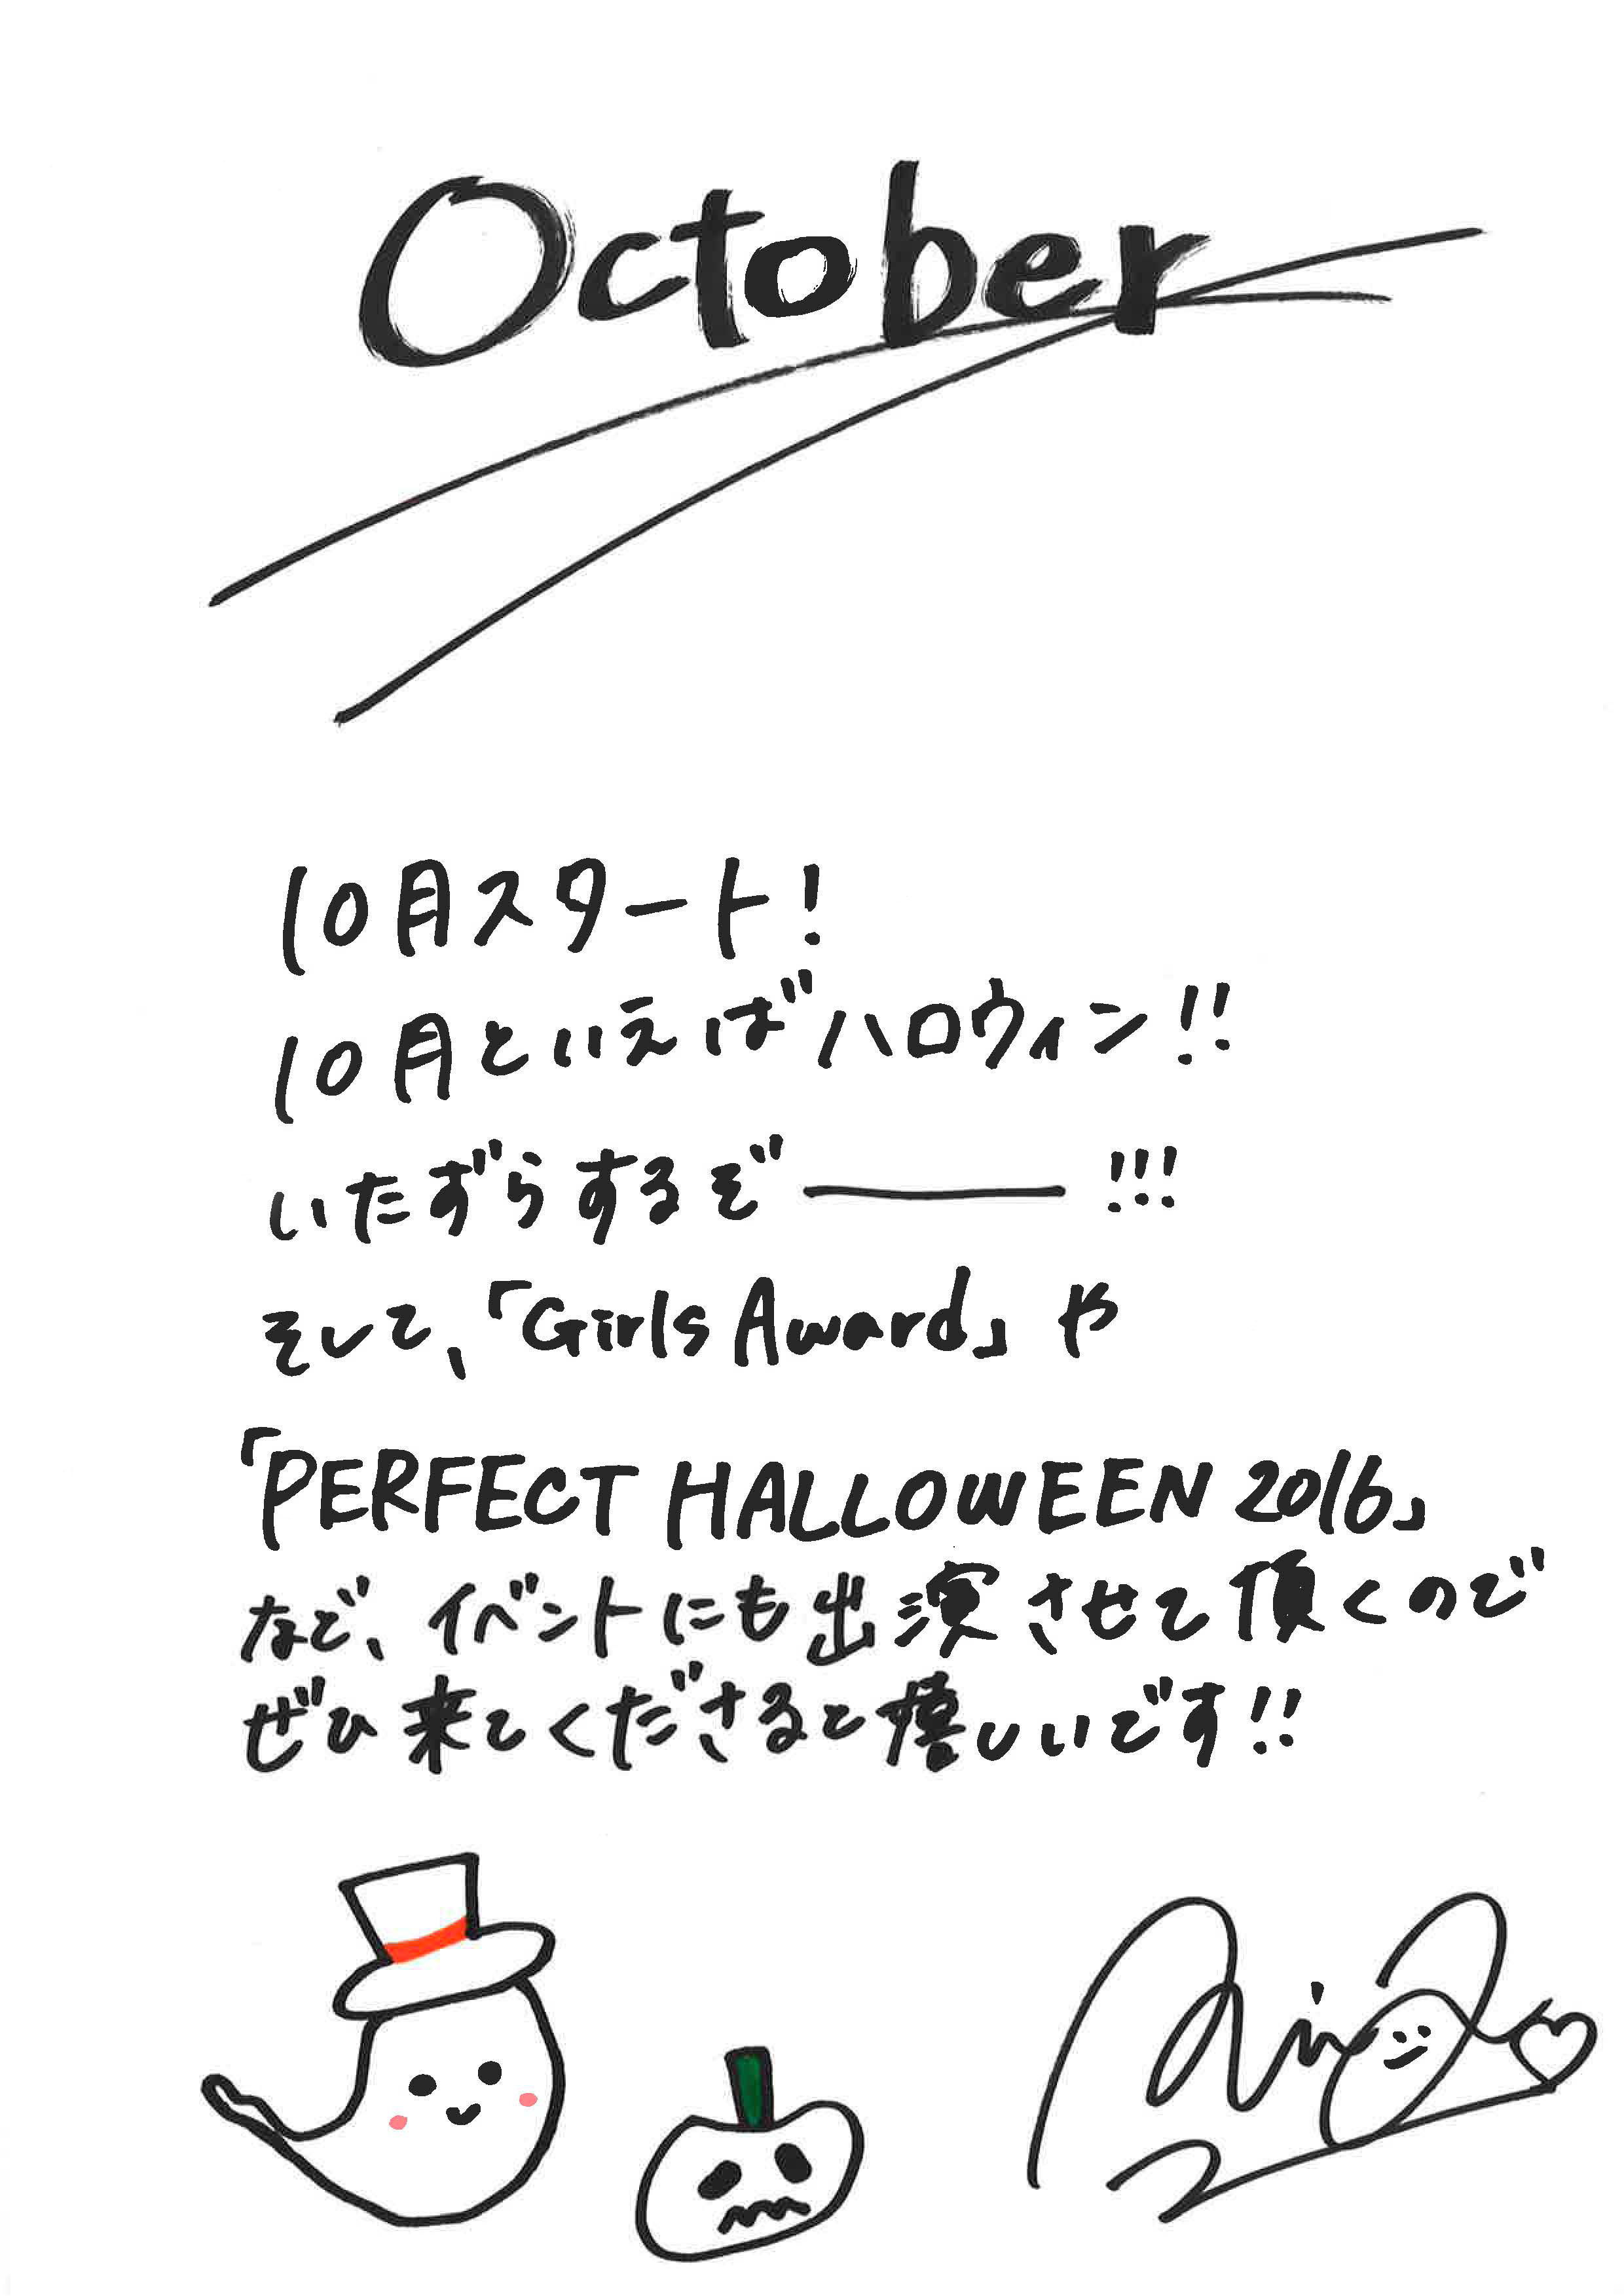 October
10月スタート!
10月といえばハロウィン!!
いたずらするぞー!!!
そして、「Girls Award」や
「PERFECT HALLOWEEN 2016」
など、イベントにも出演させて頂くので
ぜひ来てくださると嬉しいです!!